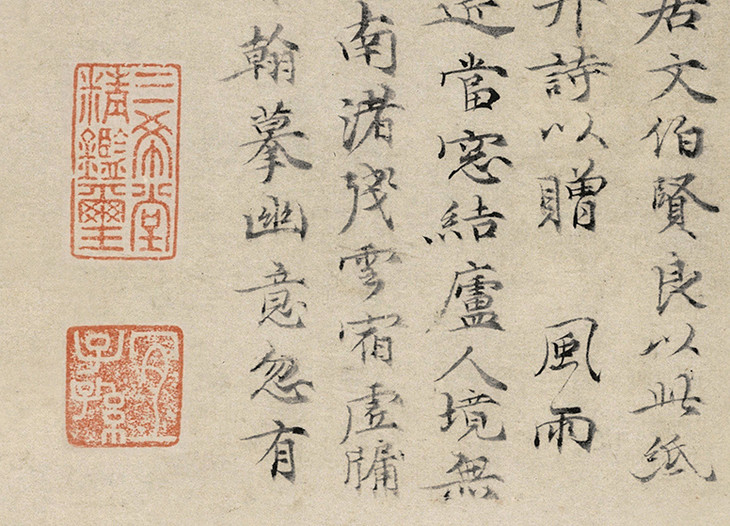 居文伯賢良以此紙
詩以贈　風雨
當窓結廬人境無
南渚残雲宿虛牖
翰摹幽意忽有
三希堂
精鑑璽
宜
子孫